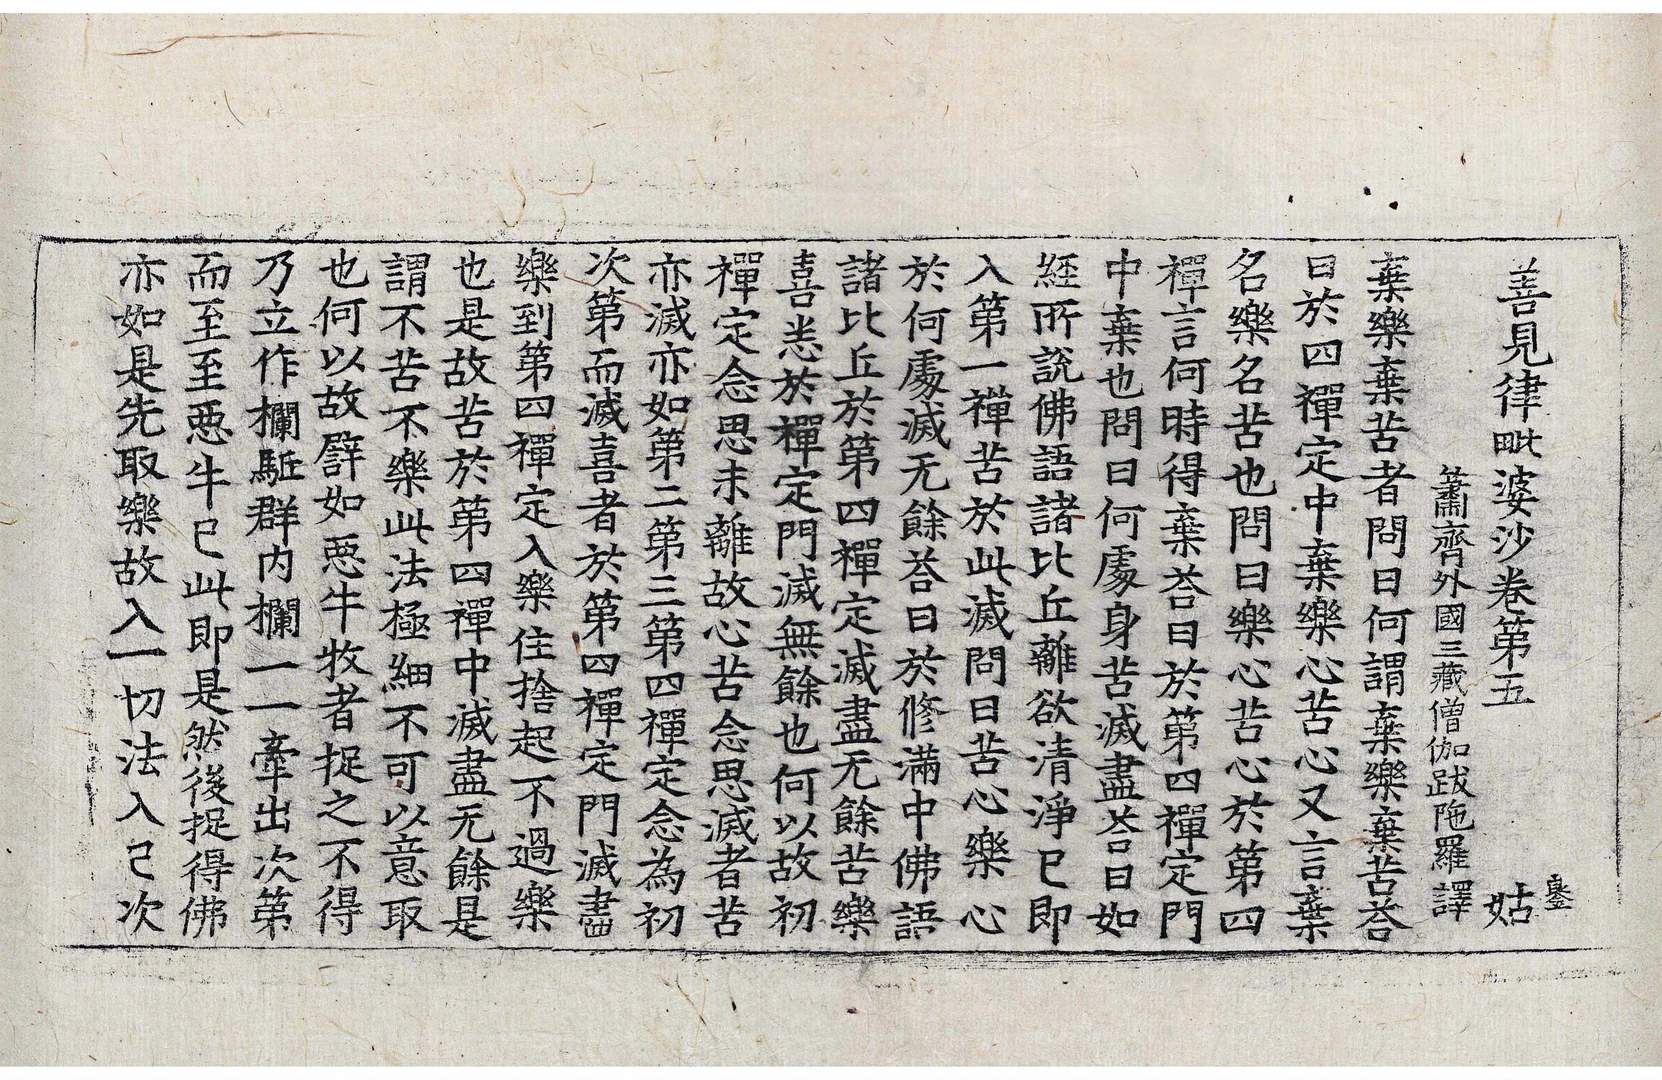 善見律毗婆沙卷第五 姑
䥐
蕭齊外國三藏僧伽跋陁羅譯
棄樂棄苦者問曰何謂棄樂棄苦荅
曰於四禪定中棄樂心苦心又言棄
名樂名苦也問曰樂心苦心於第四
禪言何時得棄荅曰於第四禪定門
中棄也問曰何處身苦滅盡荅曰如
經所說佛語諸比丘離欲清淨已即
入第一禪苦於此滅問曰苦心樂心
於何處滅无餘荅曰於修滿中佛語
諸比丘於第四禪定滅盡无餘苦樂
喜悉於禪定門滅無餘也何以故初
禪定念思未離故心苦念思滅者苦
亦滅亦如第二第三第四禪定念為初
次第而滅喜者於第四禪定門滅盡
樂到第四禪定入樂住捨起不過樂
也是故苦於第四禪中滅盡无餘是
謂不苦不樂此法極細不可以意取
也何以故譬如惡牛牧者捉之不得
乃立作欄駈群內欄一一牽出次第
而至至惡牛已此即是然後捉得佛
亦如是先取樂故入一切法入已次